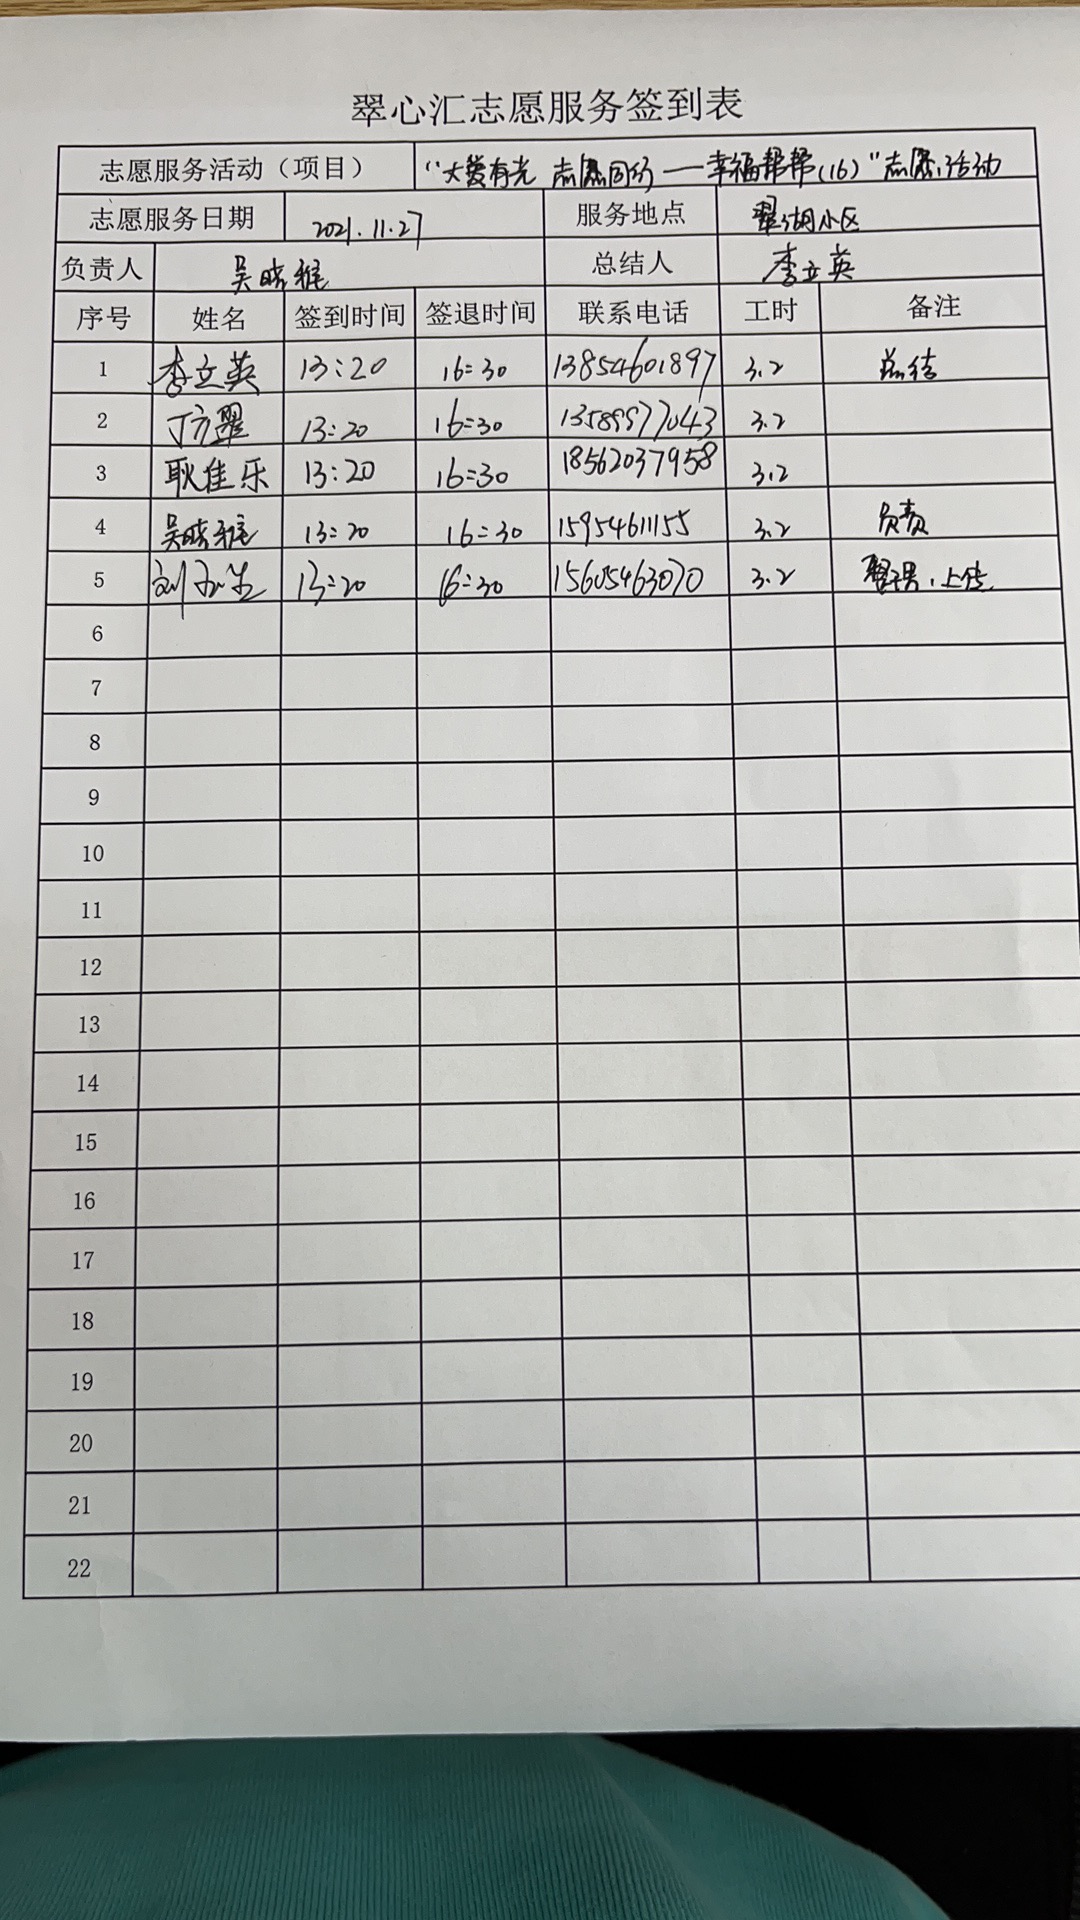 翠心汇志愿服务签到表
志愿服务活动（项目） “大爱有光 志愿同行——幸福帮帮(16)”志愿活动
志愿服务日期 2021.11.27 服务地点 翠湖小区
负责人 吴晓雅 总结人 李立英
序号 姓名 签到时间 签退时间 联系电话 工时 备注
1 李立英 13:20 16:30 13854601897 3.2 总结
2 丁方翠 13:20 16:30 13589977043 3.2
3 耿佳乐 13:20 16:30 18562037958 3.2
4 吴晓雅 13:20 16:30 15954611155 3.2 负责
5 刘 13:20 16:30 15605463070 3.2 上传
6
7
8
9
10
11
12
13
14
15
16
17
18
19
20
21
22